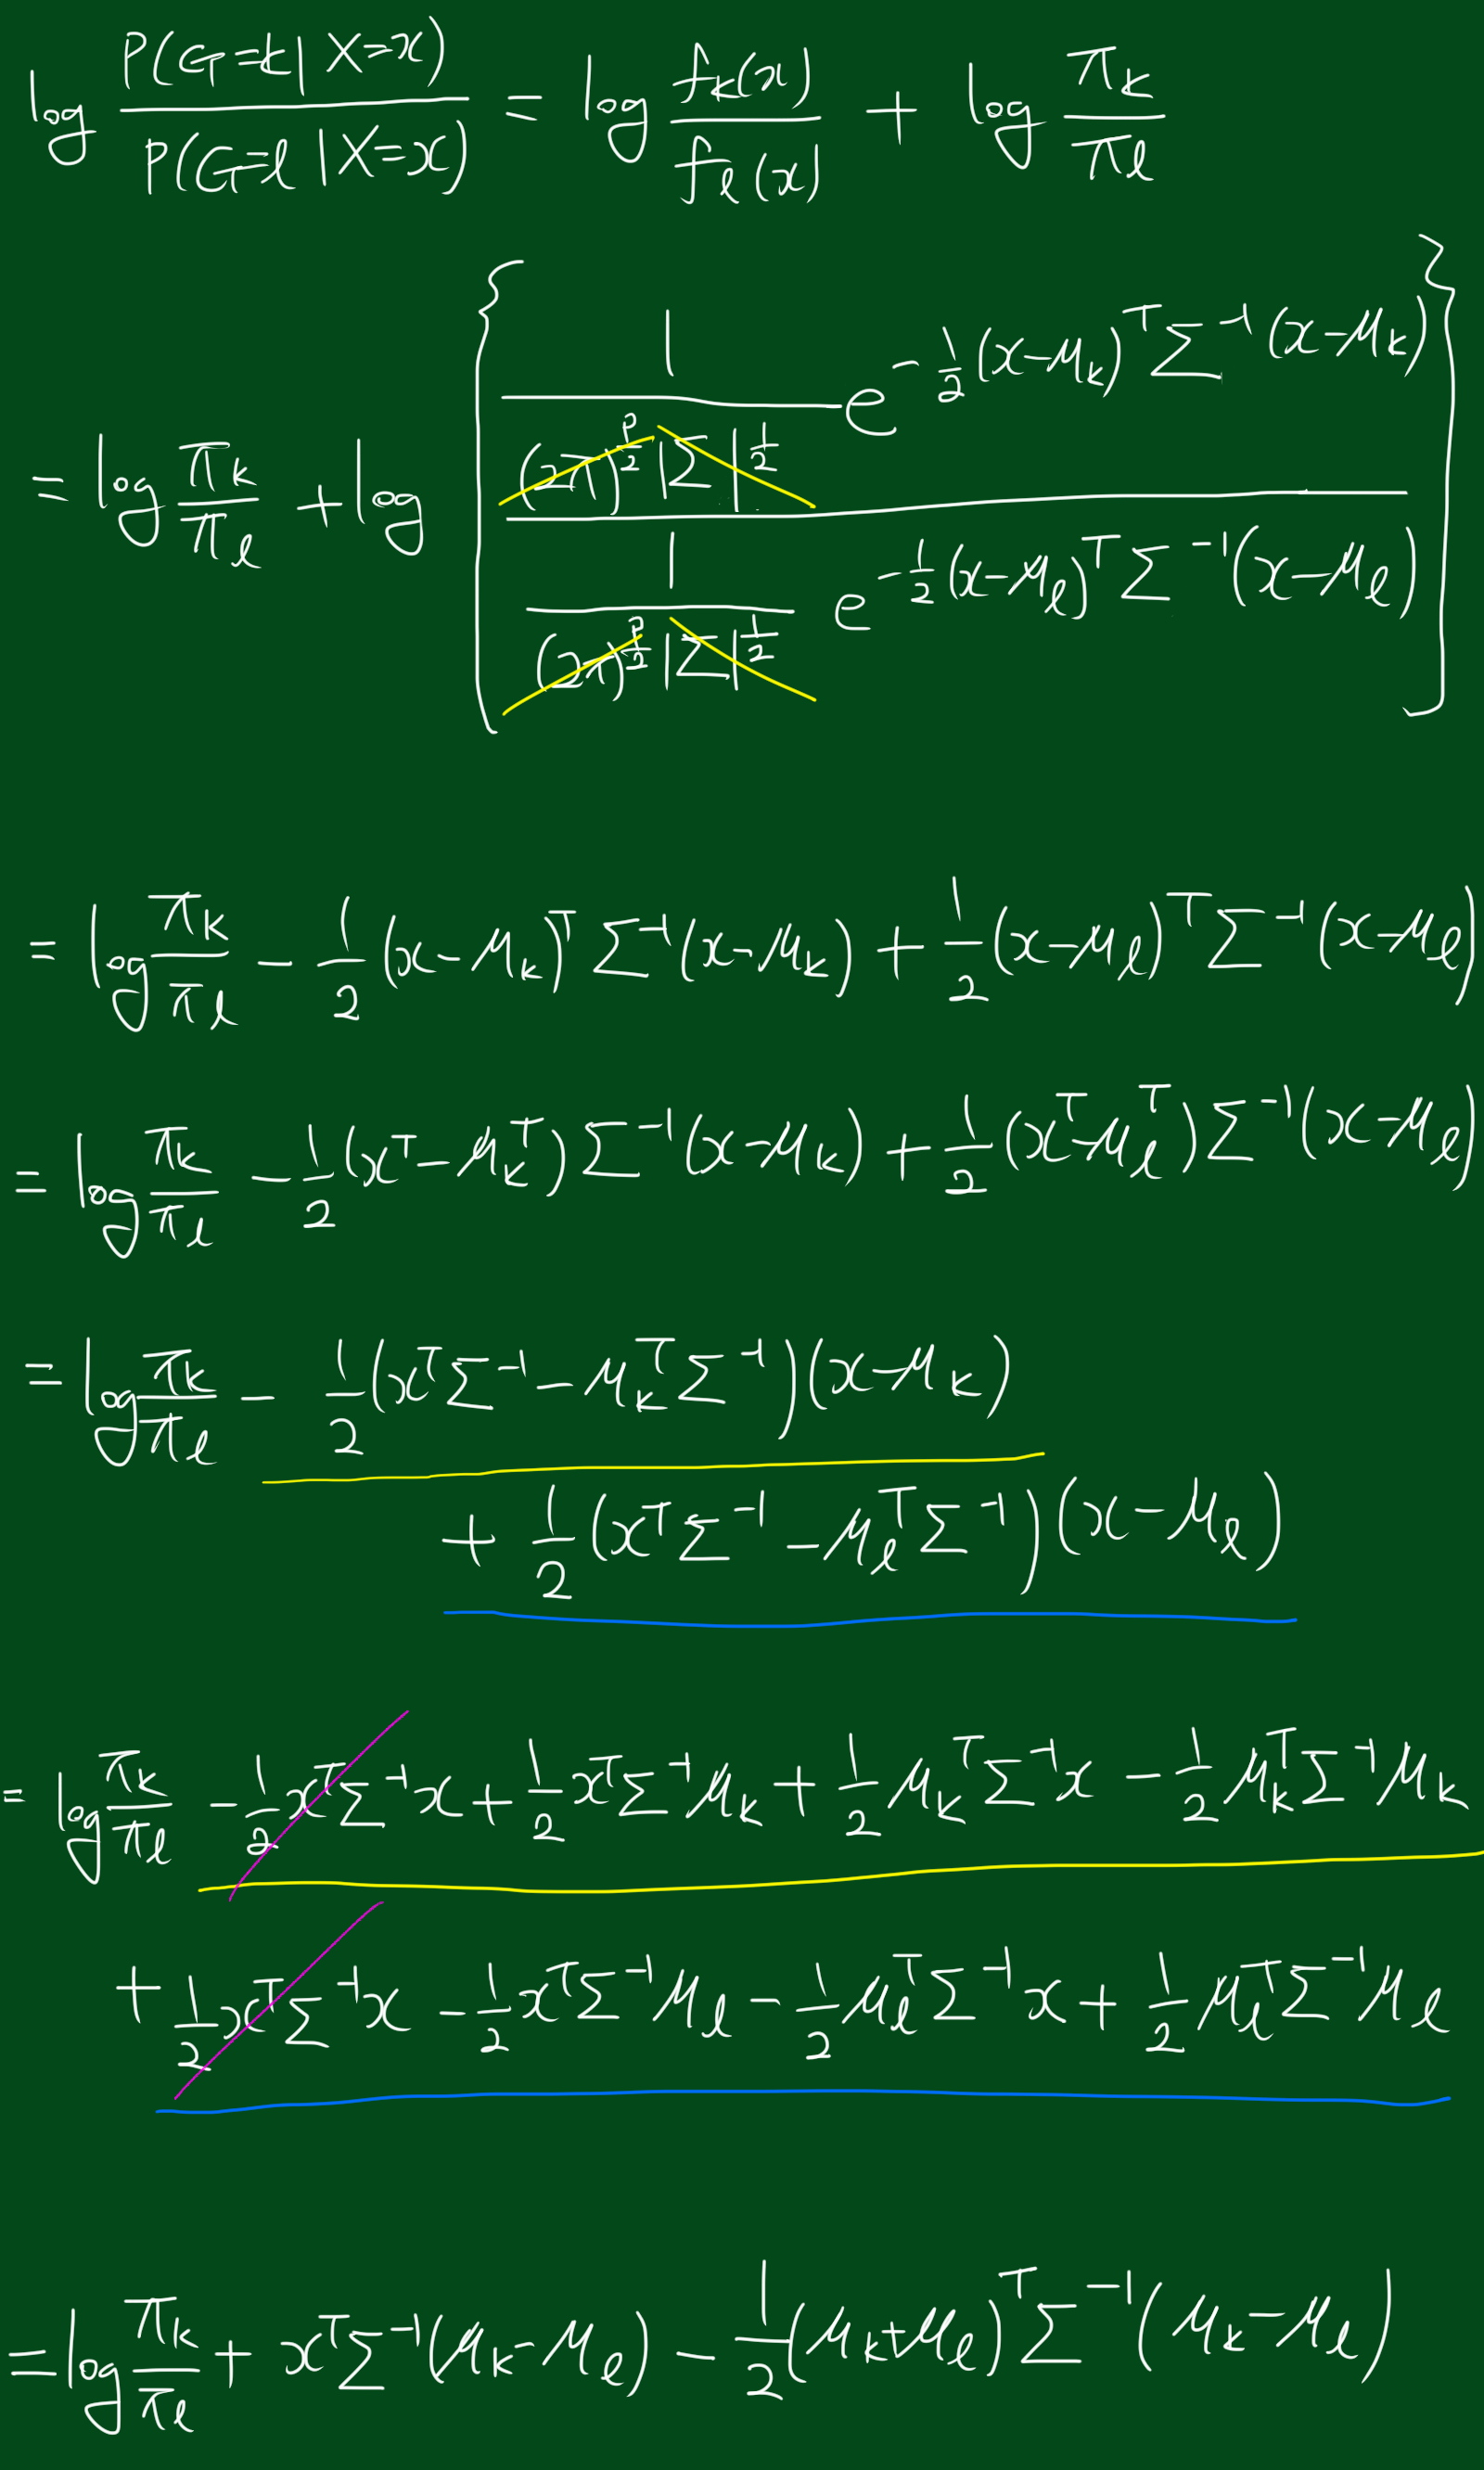 log P(G=k|X=x) / P(G=l|X=x) = log f_k(x) / f_l(x) + log π_k / π_l
= log π_k / π_l + log { 1 / ((2π)^{p/2} |Σ|^{1/2}) e^{-1/2 (x-μ_k)^T Σ^{-1} (x-μ_k)} / 1 / ((2π)^{p/2} |Σ|^{1/2}) e^{-1/2 (x-μ_l)^T Σ^{-1} (x-μ_l)} }
= log π_k / π_l - 1/2 (x-μ_k)^T Σ^{-1} (x-μ_k) + 1/2 (x-μ_l)^T Σ^{-1} (x-μ_l)
= log π_k / π_l - 1/2 (x^T - μ_k^T) Σ^{-1} (x-μ_k) + 1/2 (x^T - μ_l^T) Σ^{-1} (x-μ_l)
= log π_k / π_l - 1/2 (x^T Σ^{-1} - μ_k^T Σ^{-1}) (x-μ_k)
+ 1/2 (x^T Σ^{-1} - μ_l^T Σ^{-1}) (x-μ_l)
= log π_k / π_l - 1/2 x^T Σ^{-1} x + 1/2 x^T Σ^{-1} μ_k + 1/2 μ_k^T Σ^{-1} x - 1/2 μ_k^T Σ^{-1} μ_k
+ 1/2 x^T Σ^{-1} x - 1/2 x^T Σ^{-1} μ_l - 1/2 μ_l^T Σ^{-1} x + 1/2 μ_l^T Σ^{-1} μ_l
= log π_k / π_l + x^T Σ^{-1} (μ_k - μ_l) - 1/2 (μ_k + μ_l)^T Σ^{-1} (μ_k - μ_l)